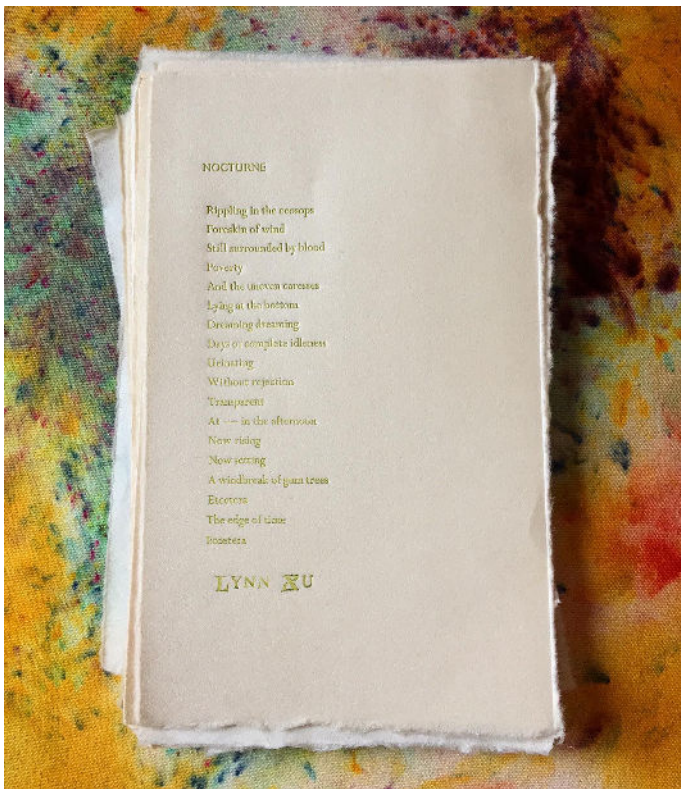 NOCTURNE
Rippling in the cesspools
Foreskin of wind
Still surrounded by blood
Poverty
And the uneven caresses
Lying at the bottom
Dreaming dreaming
Days of complete idleness
Urinating
Without rejection
Transparent
At — in the afternoon
Now rising
Now setting
A windbreak of gum trees
Etcetera
The edge of time
Etcetera
LYNN XU